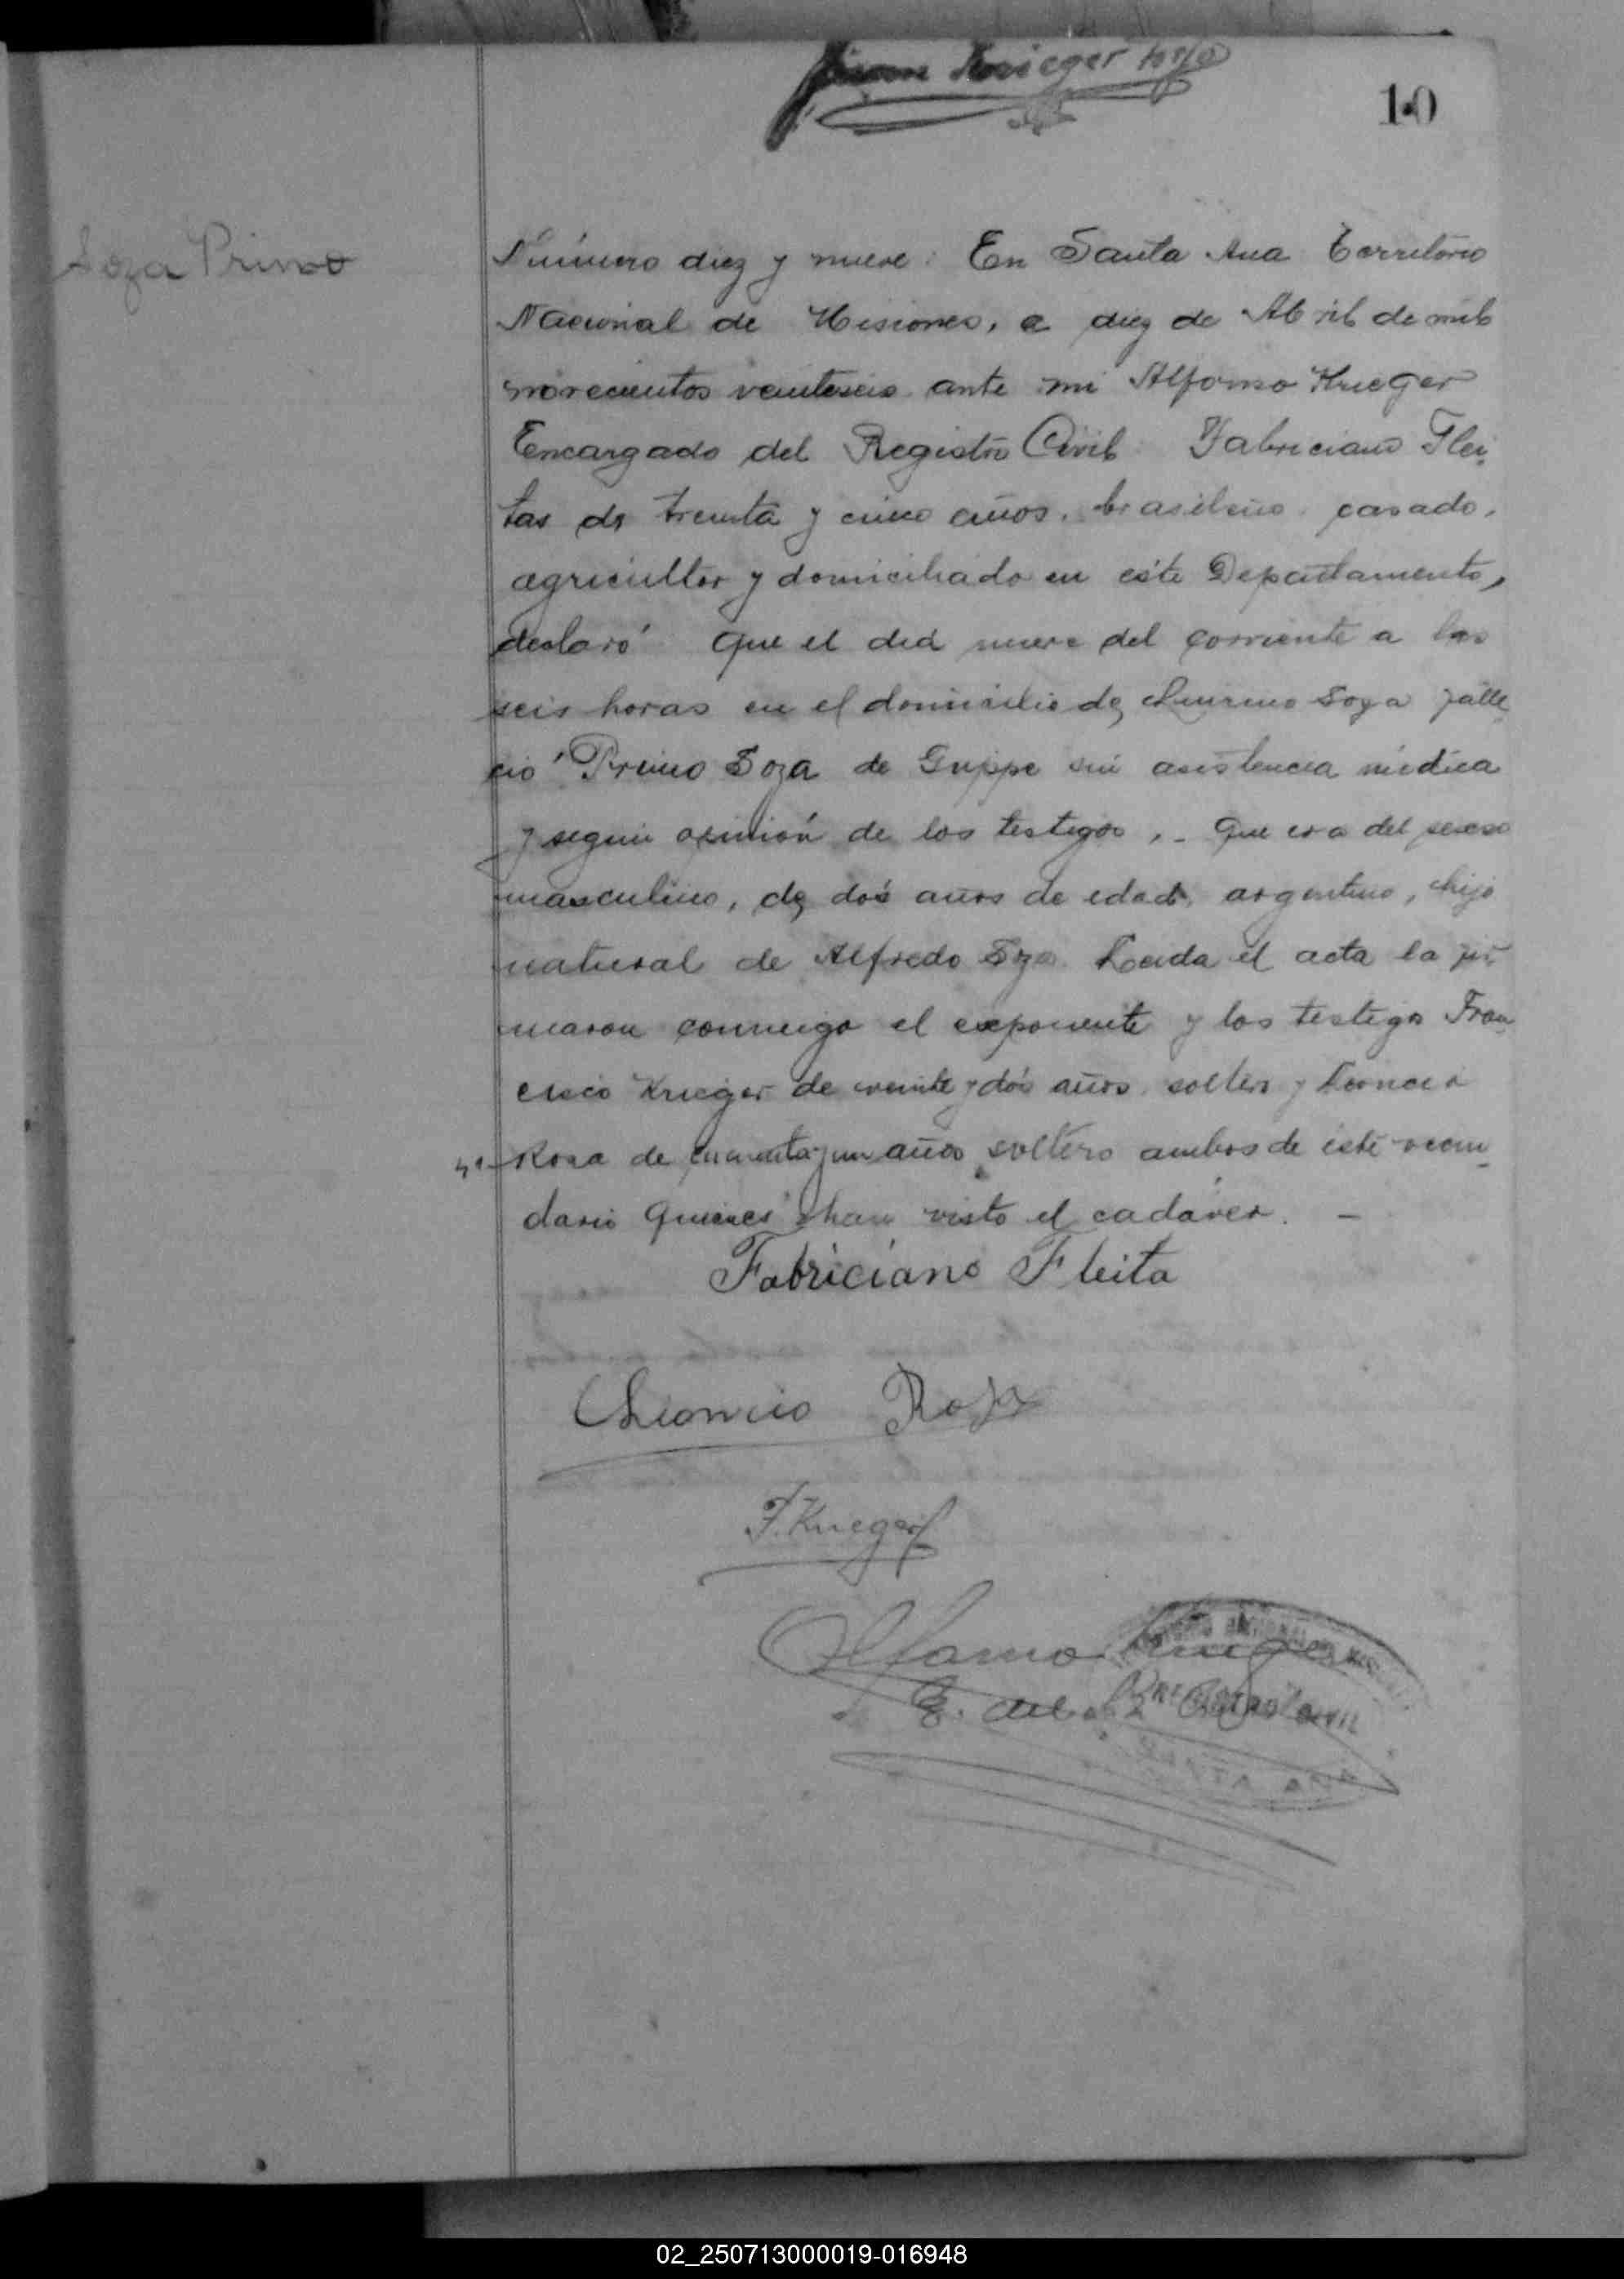 Krieger hijo
10
Soza Primo
Número diez y nueve. En Santa Ana Territorio
Nacional de Misiones, a diez de Abril de mil
novecientos veinteseis ante mi Alfonso Krieger
Encargado del Registro Civil Fabriciano Flei
tas de treinta y cinco años, brasileño, casado,
agricultor y domiciliado en este Departamento,
declaró Que el dia nueve del corriente a las
seis horas en el domicilio de Soza falle
ció Primo Soza de Grippe sin asistencia médica
y según opinión de los testigos, - Que era del sexo
masculino, de dos años de edad, argentino, hijo
natural de Alfredo Soza Leida el acta la fir
maron conmigo el exponente y los testigos Fran
cisco Krieger de veinte y dós años, soltero y Leoncio
Rosa de y un años soltero ambos de este vecin
dario Quienes han visto el cadáver. -
Fabriciano Fleita
Leoncio Roza
F. Krieger
Alfonso Krieger
E. del R. Civil
REGISTRO CIVIL
SANTA ANA
02_250713000019-016948